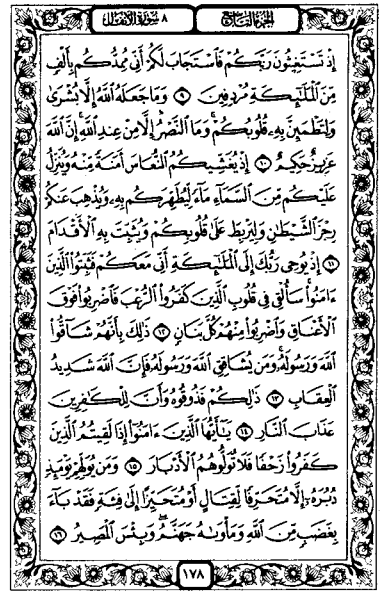 الجزء التاسع
٨ سورة الأنفال
إِذْ تَسْتَغِيثُونَ رَبَّكُمْ فَٱسْتَجَابَ لَكُمْ أَنِّى مُمِدُّكُم بِأَلْفٍ
مِّنَ ٱلْمَلَٰٓئِكَةِ مُرْدِفِينَ ۝٩ وَمَا جَعَلَهُ ٱللَّهُ إِلَّا بُشْرَىٰ
وَلِتَطْمَئِنَّ بِهِۦ قُلُوبُكُمْ ۚ وَمَا ٱلنَّصْرُ إِلَّا مِنْ عِندِ ٱللَّهِ ۚ إِنَّ ٱللَّهَ
عَزِيزٌ حَكِيمٌ ۝١٠ إِذْ يُغَشِّيكُمُ ٱلنُّعَاسَ أَمَنَةً مِّنْهُ وَيُنَزِّلُ
عَلَيْكُم مِّنَ ٱلسَّمَآءِ مَآءً لِّيُطَهِّرَكُم بِهِۦ وَيُذْهِبَ عَنكُمْ
رِجْزَ ٱلشَّيْطَٰنِ وَلِيَرْبِطَ عَلَىٰ قُلُوبِكُمْ وَيُثَبِّتَ بِهِ ٱلْأَقْدَامَ
۝١١ إِذْ يُوحِى رَبُّكَ إِلَى ٱلْمَلَٰٓئِكَةِ أَنِّى مَعَكُمْ فَثَبِّتُوا۟ ٱلَّذِينَ
ءَامَنُوا۟ ۚ سَأُلْقِى فِى قُلُوبِ ٱلَّذِينَ كَفَرُوا۟ ٱلرُّعْبَ فَٱضْرِبُوا۟ فَوْقَ
ٱلْأَعْنَاقِ وَٱضْرِبُوا۟ مِنْهُمْ كُلَّ بَنَانٍ ۝١٢ ذَٰلِكَ بِأَنَّهُمْ شَآقُّوا۟
ٱللَّهَ وَرَسُولَهُۥ ۚ وَمَن يُشَاقِقِ ٱللَّهَ وَرَسُولَهُۥ فَإِنَّ ٱللَّهَ شَدِيدُ
ٱلْعِقَابِ ۝١٣ ذَٰلِكُمْ فَذُوقُوهُ وَأَنَّ لِلْكَٰفِرِينَ
عَذَابَ ٱلنَّارِ ۝١٤ يَٰٓأَيُّهَا ٱلَّذِينَ ءَامَنُوٓا۟ إِذَا لَقِيتُمُ ٱلَّذِينَ
كَفَرُوا۟ زَحْفًا فَلَا تُوَلُّوهُمُ ٱلْأَدْبَارَ ۝١٥ وَمَن يُوَلِّهِمْ يَوْمَئِذٍ
دُبُرَهُۥٓ إِلَّا مُتَحَرِّفًا لِّقِتَالٍ أَوْ مُتَحَيِّزًا إِلَىٰ فِئَةٍ فَقَدْ بَآءَ
بِغَضَبٍ مِّنَ ٱللَّهِ وَمَأْوَىٰهُ جَهَنَّمُ ۖ وَبِئْسَ ٱلْمَصِيرُ ۝١٦
١٧٨